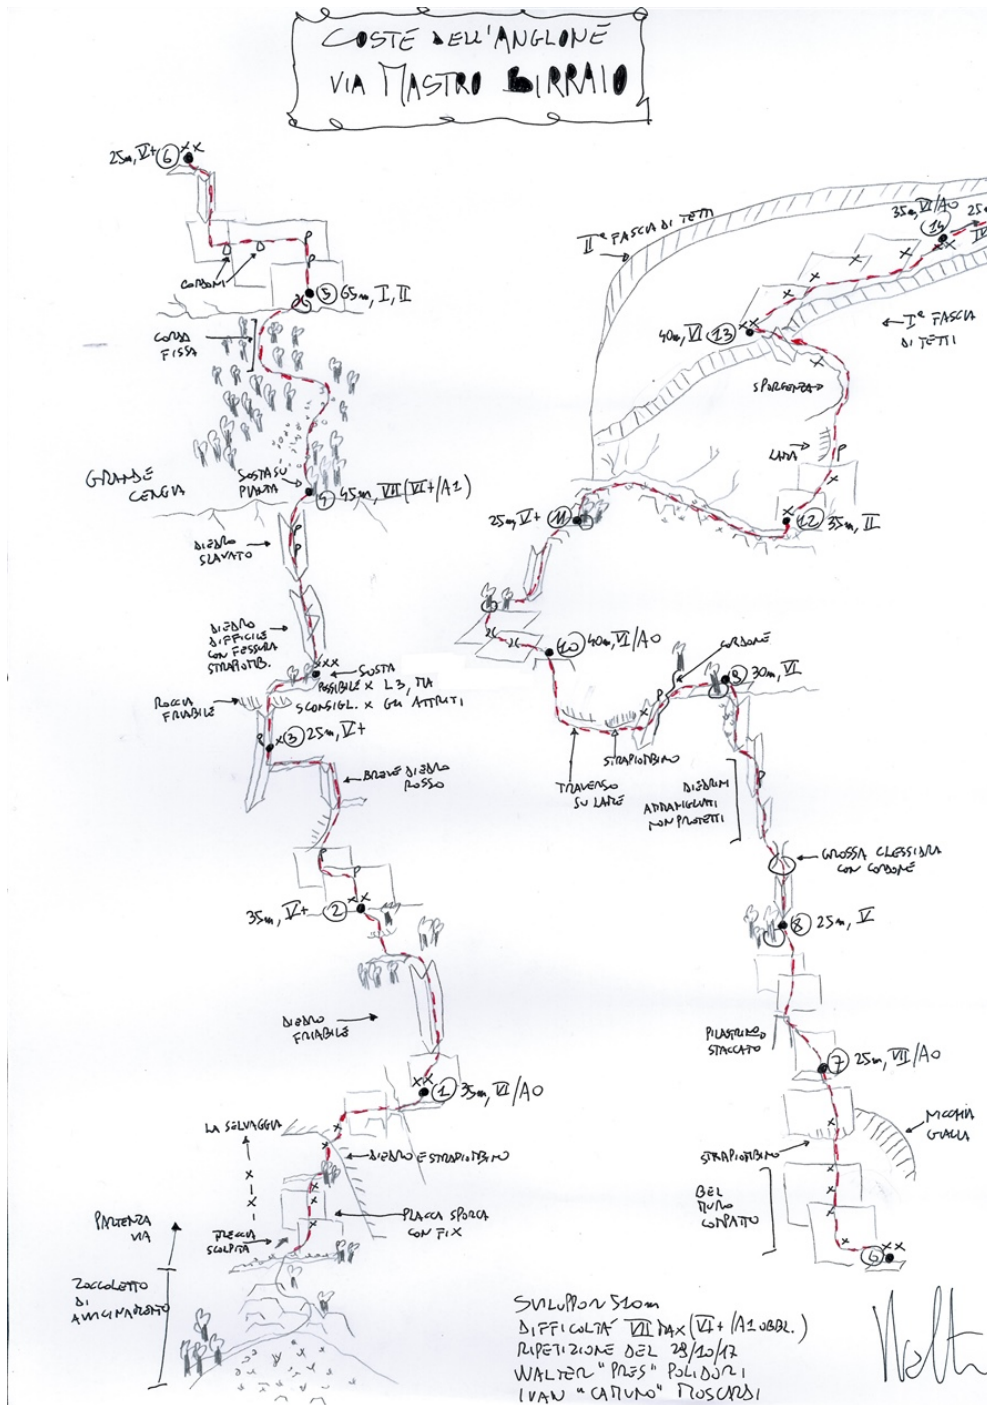 COSTE DELL'ANGLONE
VIA MASTRO BIRRAIO
25m, V+ 6 XX
CORDONI
P
P
5 65m, I, II
CORDA
FISSA
GRANDE
CENGIA
SOSTA SU
PIANTA
4 45m, VII (VI+/A1)
DIEDRO
SLAVATO
P
P
DIEDRO
DIFFICILE
CON FESSURA
STRAPIOMB.
XX
SOSTA
POSSIBILE X L3, MA
SCONSIGL. X GLI ATTRITI
ROCCIA
FRIABILE
P
X 3 25m, V+
BREVE DIEDRO
ROSSO
P
P
XX
35m, V+ 2
DIEDRO
FRIABILE
XX
1 35m, VI/A0
LA SELVAGGIA
DIEDRO E STRAPIOMBINO
PLACCA SPORCA
CON FIX
FRECCIA
SCOLPITA
PARTENZA
VIA
ZOCCOLETTO
DI
AVVICINAMENTO
IIª FASCIA DI TETTI
35m, VI/A0
14
25m
XX
Iª FASCIA
DI TETTI
40m, VI 13 XX
SPORGENZA
LAMA
P
12 35m, II
25m, V+ 11
10 40m, VI/A0
CORDONE
P
9 30m, VI
STRAPIOMBINO
TRAVERSO
SU LAME
DIEDRINI
ARRANGIATI
NON PROTETTI
P
GROSSA CLESSIDRA
CON CORDONE
8 25m, V
PILASTRINO
STACCATO
7 25m, VII/A0
NICCHIA
GIALLA
STRAPIOMBINO
BEL
MURO
COMPATTO
6 XX
SVILUPPO 510m
DIFFICOLTÀ VII MAX (VI+/A1 OBBL.)
RIPETIZIONE DEL 29/10/17
WALTER "PRES" POLIDORI
IVAN "CAMUNO" MOSCARDI